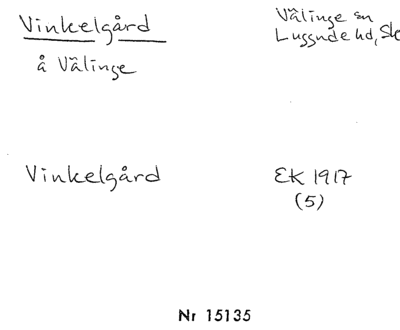 Vinkelgård
Välinge sn
Luggude hd, Sk
å Välinge
Vinkelgård
EK 1917
(5)
Nr 15135